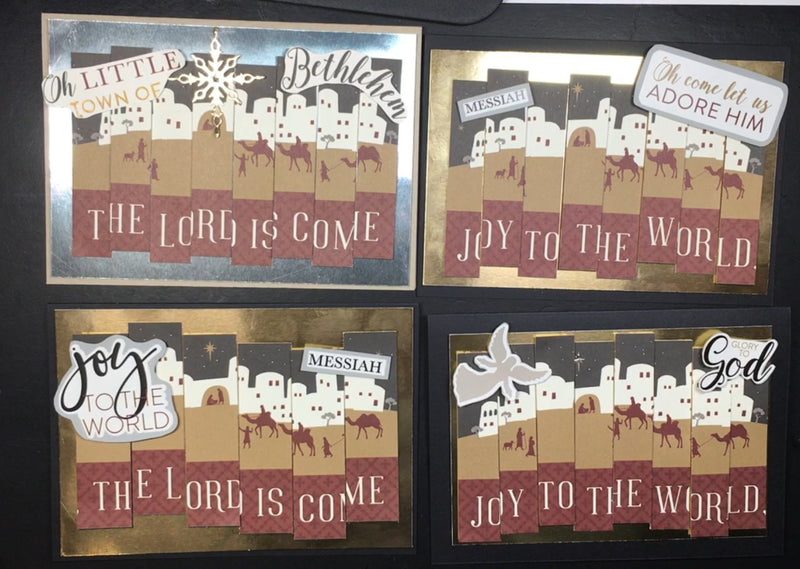 Oh LITTLE
TOWN OF
Bethlehem
THE LORD IS COME
MESSIAH
Oh come let us
ADORE HIM
JOY TO THE WORLD.
joy
TO THE
WORLD
MESSIAH
THE LORD IS COME
GLORY
TO
God
JOY TO THE WORLD.